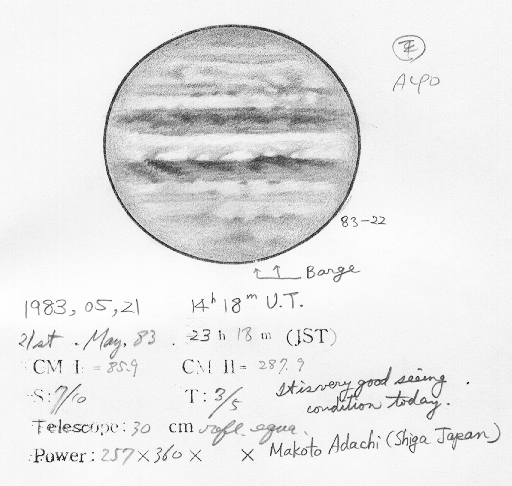 ALPO
83-22
Barge
1983, 05, 21 14h 18m U.T.
21st . May. 83 . 23 h 18 m (JST)
CM I = 85.9 CM II = 287.9
S: 7/10 T: 3/5 It is very good seeing
condition today.
Telescope: 30 cm refl. equa.
Power: 257 × 360 × × Makoto Adachi (Shiga Japan)